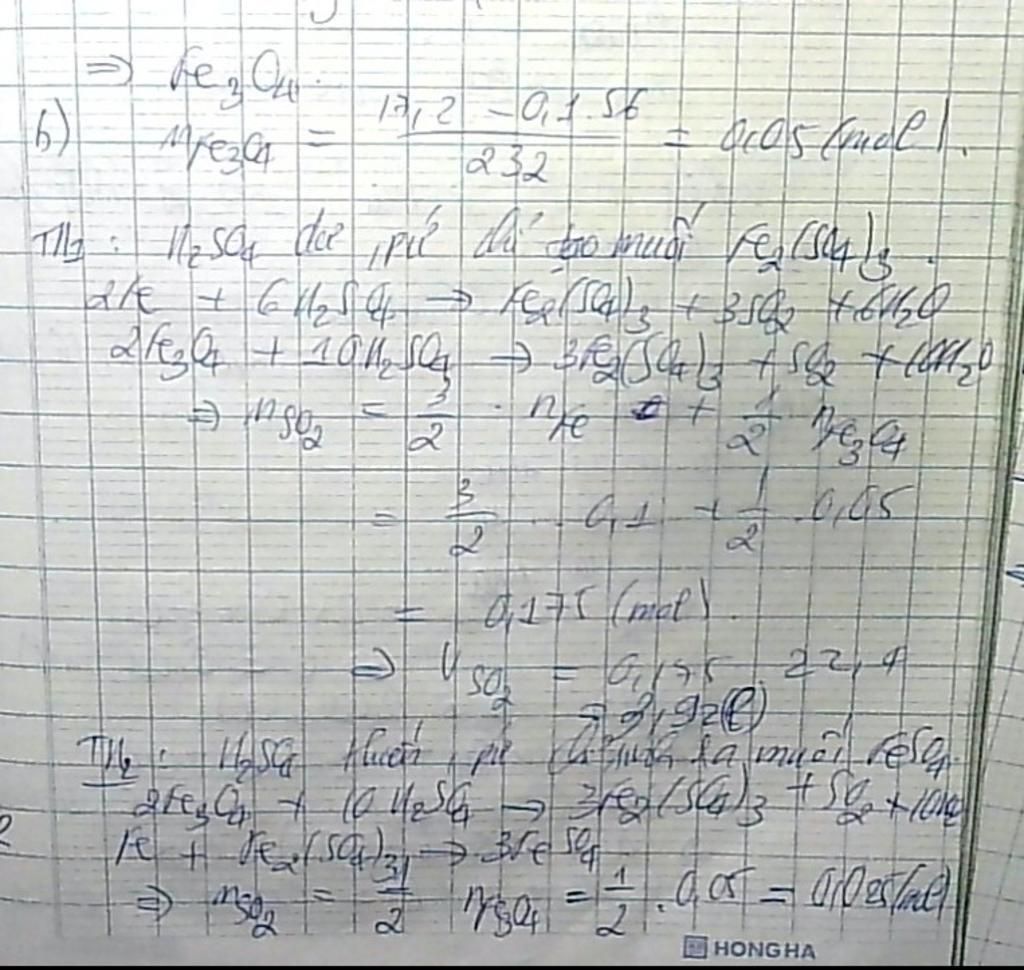 ⇒ Fe₃O₄.
b) nFe₃O₄ = (17,2 - 0,1.56)/232 = 0,05 (mol).
TH₁ : H₂SO₄ dư, pứ chỉ tạo muối Fe₂(SO₄)₃.
2Fe + 6H₂SO₄ → Fe₂(SO₄)₃ + 3SO₂ + 6H₂O
2Fe₃O₄ + 10H₂SO₄ → 3Fe₂(SO₄)₃ + SO₂ + 10H₂O
⇒ nSO₂ = 3/2 . nFe + 1/2 nFe₃O₄
= 3/2 . 0,1 + 1/2 . 0,05
= 0,175 (mol).
⇒ VSO₂ = 0,175 . 22,4
= 3,92 (l)
TH₂ : H₂SO₄ thiếu, pứ ra muối FeSO₄.
2Fe₃O₄ + 10H₂SO₄ → 3Fe₂(SO₄)₃ + SO₂ + 10H₂
Fe + Fe₂(SO₄)₃ → 3FeSO₄
⇒ nSO₂ = 1/2 nFe₃O₄ = 1/2 . 0,05 = 0,025 (mol)
HONG HA